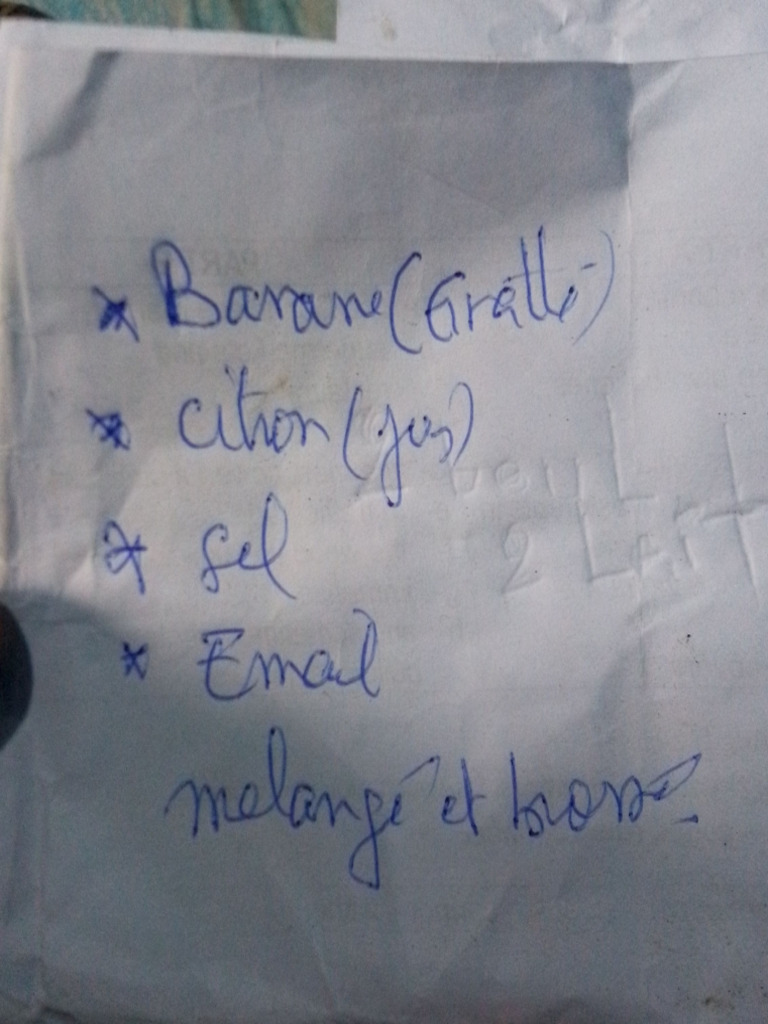 * Banane (Gratté)
* citron (jus)
* sel
* Email
melangé et brossé
2 LAST